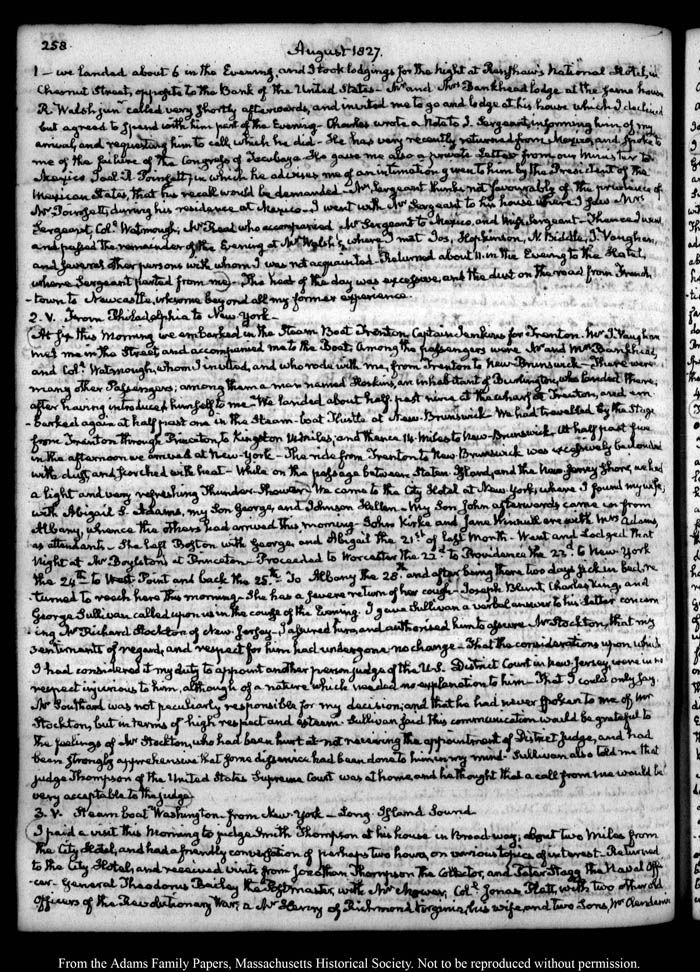 258
August 1827.
1 — we landed about 6 in the Evening, and I took lodgings for the night at Renshaw's National Hotel, in
Chesnut Street, opposite to the Bank of the United States — Mr and Mrs Bankhead lodge at the same house
R. Walsh junr called very shortly afterwards, and invited me to go and lodge at his house which I declined
but agreed to spend with him part of the Evening — Charles wrote a Note to J. Sergeant, informing him of my
arrival, and requesting him to call, which he did — He has very recently returned from Mexico, and spoke to
me of the failure of the Congress of Tacubaya — He gave me also a private Letter from our Minister to
Mexico Joel R. Poinsett, in which he advises me of an intimation given to him by the President of the
Mexican States, that his recall would be demanded — Mr Sergeant thinks not favourably of the prudence of
Mr Poinsett, during his residence at Mexico — I went with Mr Sergeant to his house where I saw Mrs
Sergeant, Coll. Watmough, Mr Read who accompanied Mr Sergeant to Mexico, and Miss Sergeant — Thence I went
and passed the remainder of the Evening at Mr Walsh's, where I met Jos. Hopkinson, N. Biddle, J. Vaughan,
and several other persons with whom I was not acquainted — Returned about 11. in the Evening to the Hotel,
where Sergeant parted from me — The heat of the day was excessive, and the dust on the road from French
-town to Newcastle, irksome beyond all my former experience.
2. V. From Philadelphia to New-York —
At six this Morning we embarked in the Steam Boat Trenton, Captain Jenkins for Trenton. Mr J. Vaughan
met me in the Street, and accompanied me to the Boat. Among the passengers were Mr and Mrs Bankhead,
and Coll. Watmough, whom I invited, and who rode with me, from Trenton to New-Brunswick — There were
many other Passengers; among them a man named Hoskins, an inhabitant of Burlington, who landed there;
after having introduced himself to me — We landed about half past nine at the wharf at Trenton, and em-
-barked again at half past one in the Steam-boat Thistle at New-Brunswick — We had travelled by the Stage
from Trenton through Princeton, to Kingston 14 Miles, and thence 14 Miles to New-Brunswick. At half past five
in the afternoon we arrived at New-York — The ride from Trenton to New Brunswick was excessively be-clouded
with dust, and scorched with heat — While on the passage between Staten Island, and the New Jersey Shore, we had
a light and very refreshing Thunder-Shower. We came to the City Hotel at New York; where I found my wife,
with Abigail S. Adams, my Son George, and Johnson Hellen — My Son John afterwards came in from
Albany, whence the others had arrived this morning — John Kirke and Jane Winnull are with Mrs Adams,
as attendants — She left Boston with George, and Abigail the 21st of last Month — Went and Lodged that
Night at Mr Boylston's at Princeton — Proceeded to Worcester the 22d to Providence the 23. to New York
the 24th to West Point and back the 25th. To Albany the 28th and after being there two days sick in bed, re-
turned to reach here this morning — She has a severe return of her cough — Joseph Blunt, Charles King, and
George Sullivan called upon us in the course of the Evening. I gave Sullivan a verbal answer to his Letter concern
ing Mr Richard Stockton of New Jersey — I assured him and authorised him to assure Mr Stockton, that my
sentiments of regard, and respect for him had undergone no change — That the considerations upon which
I had considered it my duty to appoint another person judge of the U.S. District Court in New Jersey, were in no
respect injurious to him, although of a nature which needed no explanation to him — That I could only say.
Mr Southard was not peculiarly responsible for my decision; and that he had never spoken to me of Mr
Stockton, but in terms of high respect and esteem. Sullivan said this communication would be grateful to
the feelings of Mr Stockton, who had been hurt at not receiving the appointment of District Judge, and had
been strongly apprehensive that some disservice had been done to him in my mind — Sullivan also told me that
judge Thompson of the United States Supreme Court was at home, and he thought that a call from me would be
very acceptable to the judge.
3. VI. Steam boat Washington from New-York — Long-Island Sound.
I paid a visit this Morning to judge Smith Thompson at his house in Broad-way, about two Miles from
the City Hotel, and had a friendly conversation of perhaps two hours, on various topics of interest — Returned
to the City Hotel, and received visits from Jonathan Thompson the Collector, and Peter Stagg the Naval Offi-
-cer — General Theodorus Bailey the Postmaster, with Mr Mower, Coll. Jonas Platt, with two other old
Officers of the Revolutionary War; a Mr Henry of Richmond Virginia, his wife, and two Sons, Mr
From the Adams Family Papers, Massachusetts Historical Society. Not to be reproduced without permission.